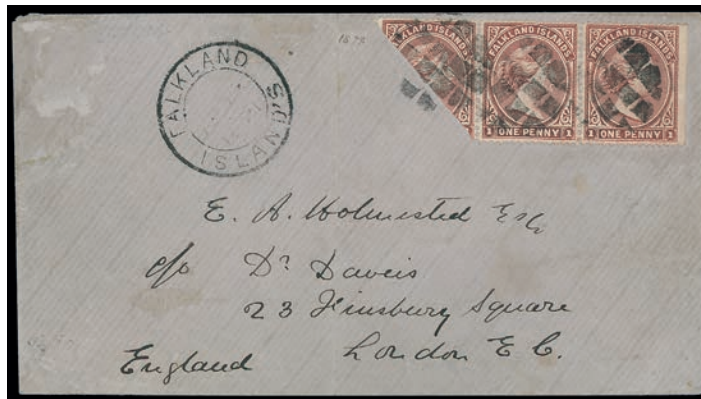 FALKLAND ISLANDS
FALKLAND ISLANDS
FALKLAND ISLANDS
1 ONE PENNY 1
1 ONE PENNY 1
FALKLAND ISLANDS
E. A. Holmested Esq
c/o Dr Daveis
23 Finsbury Square
London E C.
England